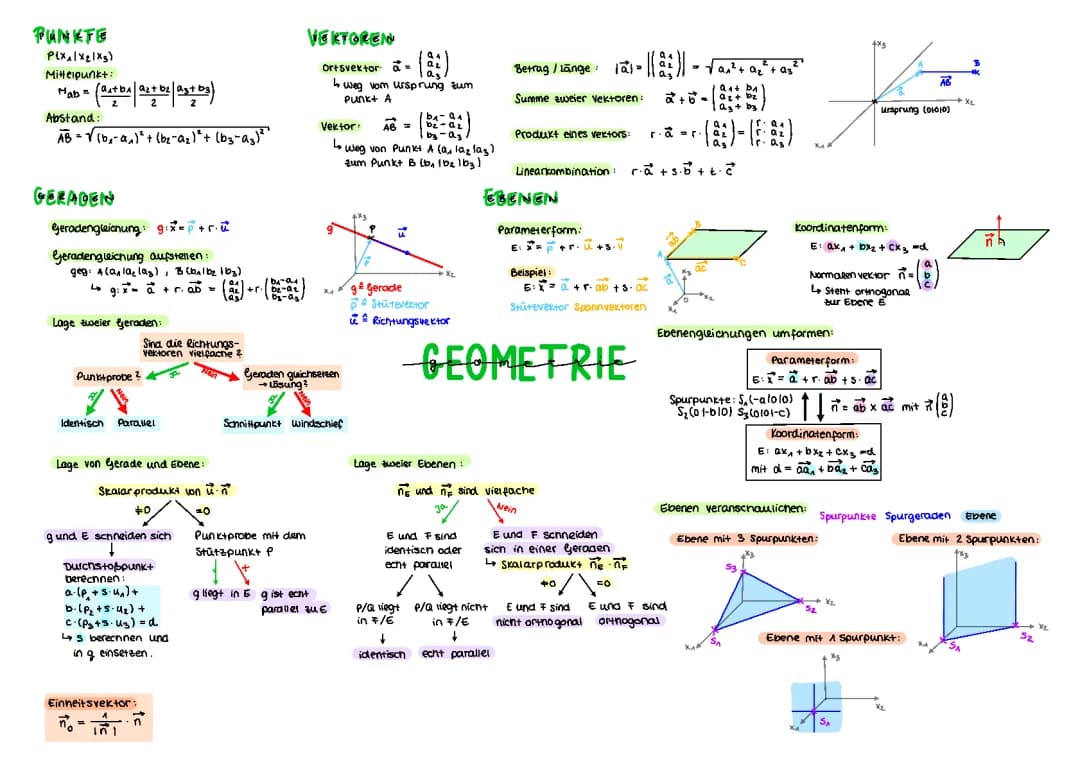 PUNKTE
P(x₁|x₂|x₃)
Mittelpunkt:
M_ab = (a₁+b₁/2 | a₂+b₂/2 | a₃+b₃/2)
Abstand:
AB = √(b₁-a₁)² + (b₂-a₂)² + (b₃-a₃)²
VEKTOREN
Ortsvektor a⃗ = (a₁ a₂ a₃)
↳ Weg vom Ursprung zum
Punkt A
Vektor: AB⃗ = (b₁-a₁ b₂-a₂ b₃-a₃)
↳ Weg von Punkt A (a₁|a₂|a₃)
zum Punkt B (b₁|b₂|b₃)
Betrag / Länge: |a⃗| = |(a₁ a₂ a₃)| = √a₁² + a₂² + a₃²
Summe zweier Vektoren: a⃗ + b⃗ = (a₁+b₁ a₂+b₂ a₃+b₃)
Produkt eines Vektors: r·a⃗ = r·(a₁ a₂ a₃) = (r·a₁ r·a₂ r·a₃)
Linearkombination: r·a⃗ + s·b⃗ + t·c⃗
x₃
A
B
a⃗
AB⃗
x₂
Ursprung (0|0|0)
x₁
GERADEN
Geradengleichung: g: x⃗ = p⃗ + r·u⃗
Geradengleichung aufstellen:
geg: A(a₁|a₂|a₃), B(b₁|b₂|b₃)
↳ g: x⃗ = a⃗ + r·ab⃗ = (a₁ a₂ a₃) + r·(b₁-a₁ b₂-a₂ b₃-a₃)
g
x₃
P
u⃗
p⃗
x₂
x₁
g ≙ Gerade
p⃗ ≙ Stützvektor
u⃗ ≙ Richtungsvektor
Lage zweier Geraden:
Sind die Richtungs-
vektoren vielfache?
Ja
Nein
Punktprobe?
Geraden gleichsetzen
→ Lösung?
Ja
Nein
Ja
Nein
Identisch
Parallel
Schnittpunkt
Windschief
EBENEN
Parameterform:
E: x⃗ = p⃗ + r·u⃗ + s·v⃗
Beispiel:
E: x⃗ = a⃗ + r·ab⃗ + s·ac⃗
Stützvektor Spannvektoren
B
ab⃗
A
ac⃗
C
a⃗
x₃
x₂
O
x₁
Koordinatenform:
E: ax₁ + bx₂ + cx₃ = d
Normalenvektor n⃗ = (a b c)
↳ Steht orthogonal
zur Ebene E
n⃗
GEOMETRIE
Ebenengleichungen umformen:
Parameterform:
E: x⃗ = a⃗ + r·ab⃗ + s·ac⃗
Spurpunkte: S₁(-a|0|0)
S₂(0|-b|0) S₃(0|0|-c)
n⃗ = ab⃗ × ac⃗ mit n⃗(a b c)
Koordinatenform:
E: ax₁ + bx₂ + cx₃ = d
mit d = aa₁ + ba₂ + ca₃
Lage von Gerade und Ebene:
Skalarprodukt von u⃗·n⃗
≠0
=0
g und E schneiden sich
Durchstoßpunkt
berechnen:
a·(p₁+s·u₁)+
b·(p₂+s·u₂)+
c·(p₃+s·u₃)=d
↳ s berechnen und
in g einsetzen.
Punktprobe mit dem
Stützpunkt P
g liegt in E
g ist echt
parallel zu E
Einheitsvektor:
n⃗₀ = 1/|n⃗| · n⃗
Lage zweier Ebenen:
n⃗_E und n⃗_F sind vielfache
Ja
Nein
E und F sind
identisch oder
echt parallel
E und F schneiden
sich in einer Geraden
↳ Skalarprodukt n⃗_E · n⃗_F
≠0
=0
P/Q liegt
in F/E
P/Q liegt nicht
in F/E
E und F sind
nicht orthogonal
E und F sind
orthogonal
identisch
echt parallel
Ebenen veranschaulichen:
Spurpunkte Spurgeraden Ebene
Ebene mit 3 Spurpunkten:
x₃
S₃
x₂
S₂
S₁
x₁
Ebene mit 2 Spurpunkten:
x₃
x₂
S₂
x₁
S₁
Ebene mit 1 Spurpunkt:
x₃
x₂
S₁
x₁